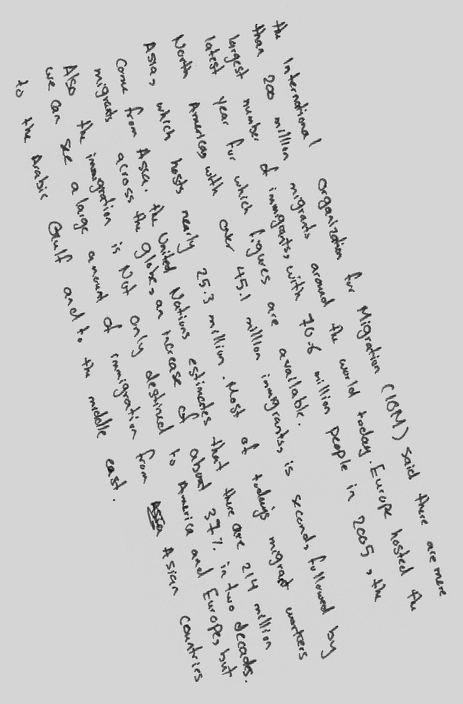 the International Organization for Migration (IOM) said there are more
than 200 million migrants around the world today. Europe hosted the
largest number of immigrants, with 70.6 million people in 2005, the
latest year for which figures are available.
North Americas with over 45.1 million immigrants, is second, followed by
Asia, which hosts nearly 25.3 million. Most of todays migrant workers
come from Asia. the United Nations estimates that there are 214 million
migrants across the globe, an increase of about 37% in two decades.
Also the immigration is Not only destined to America and Europe, but
we can see a large amount of immigration from Asian countries
to the Arabic Gulf and to the middle east.